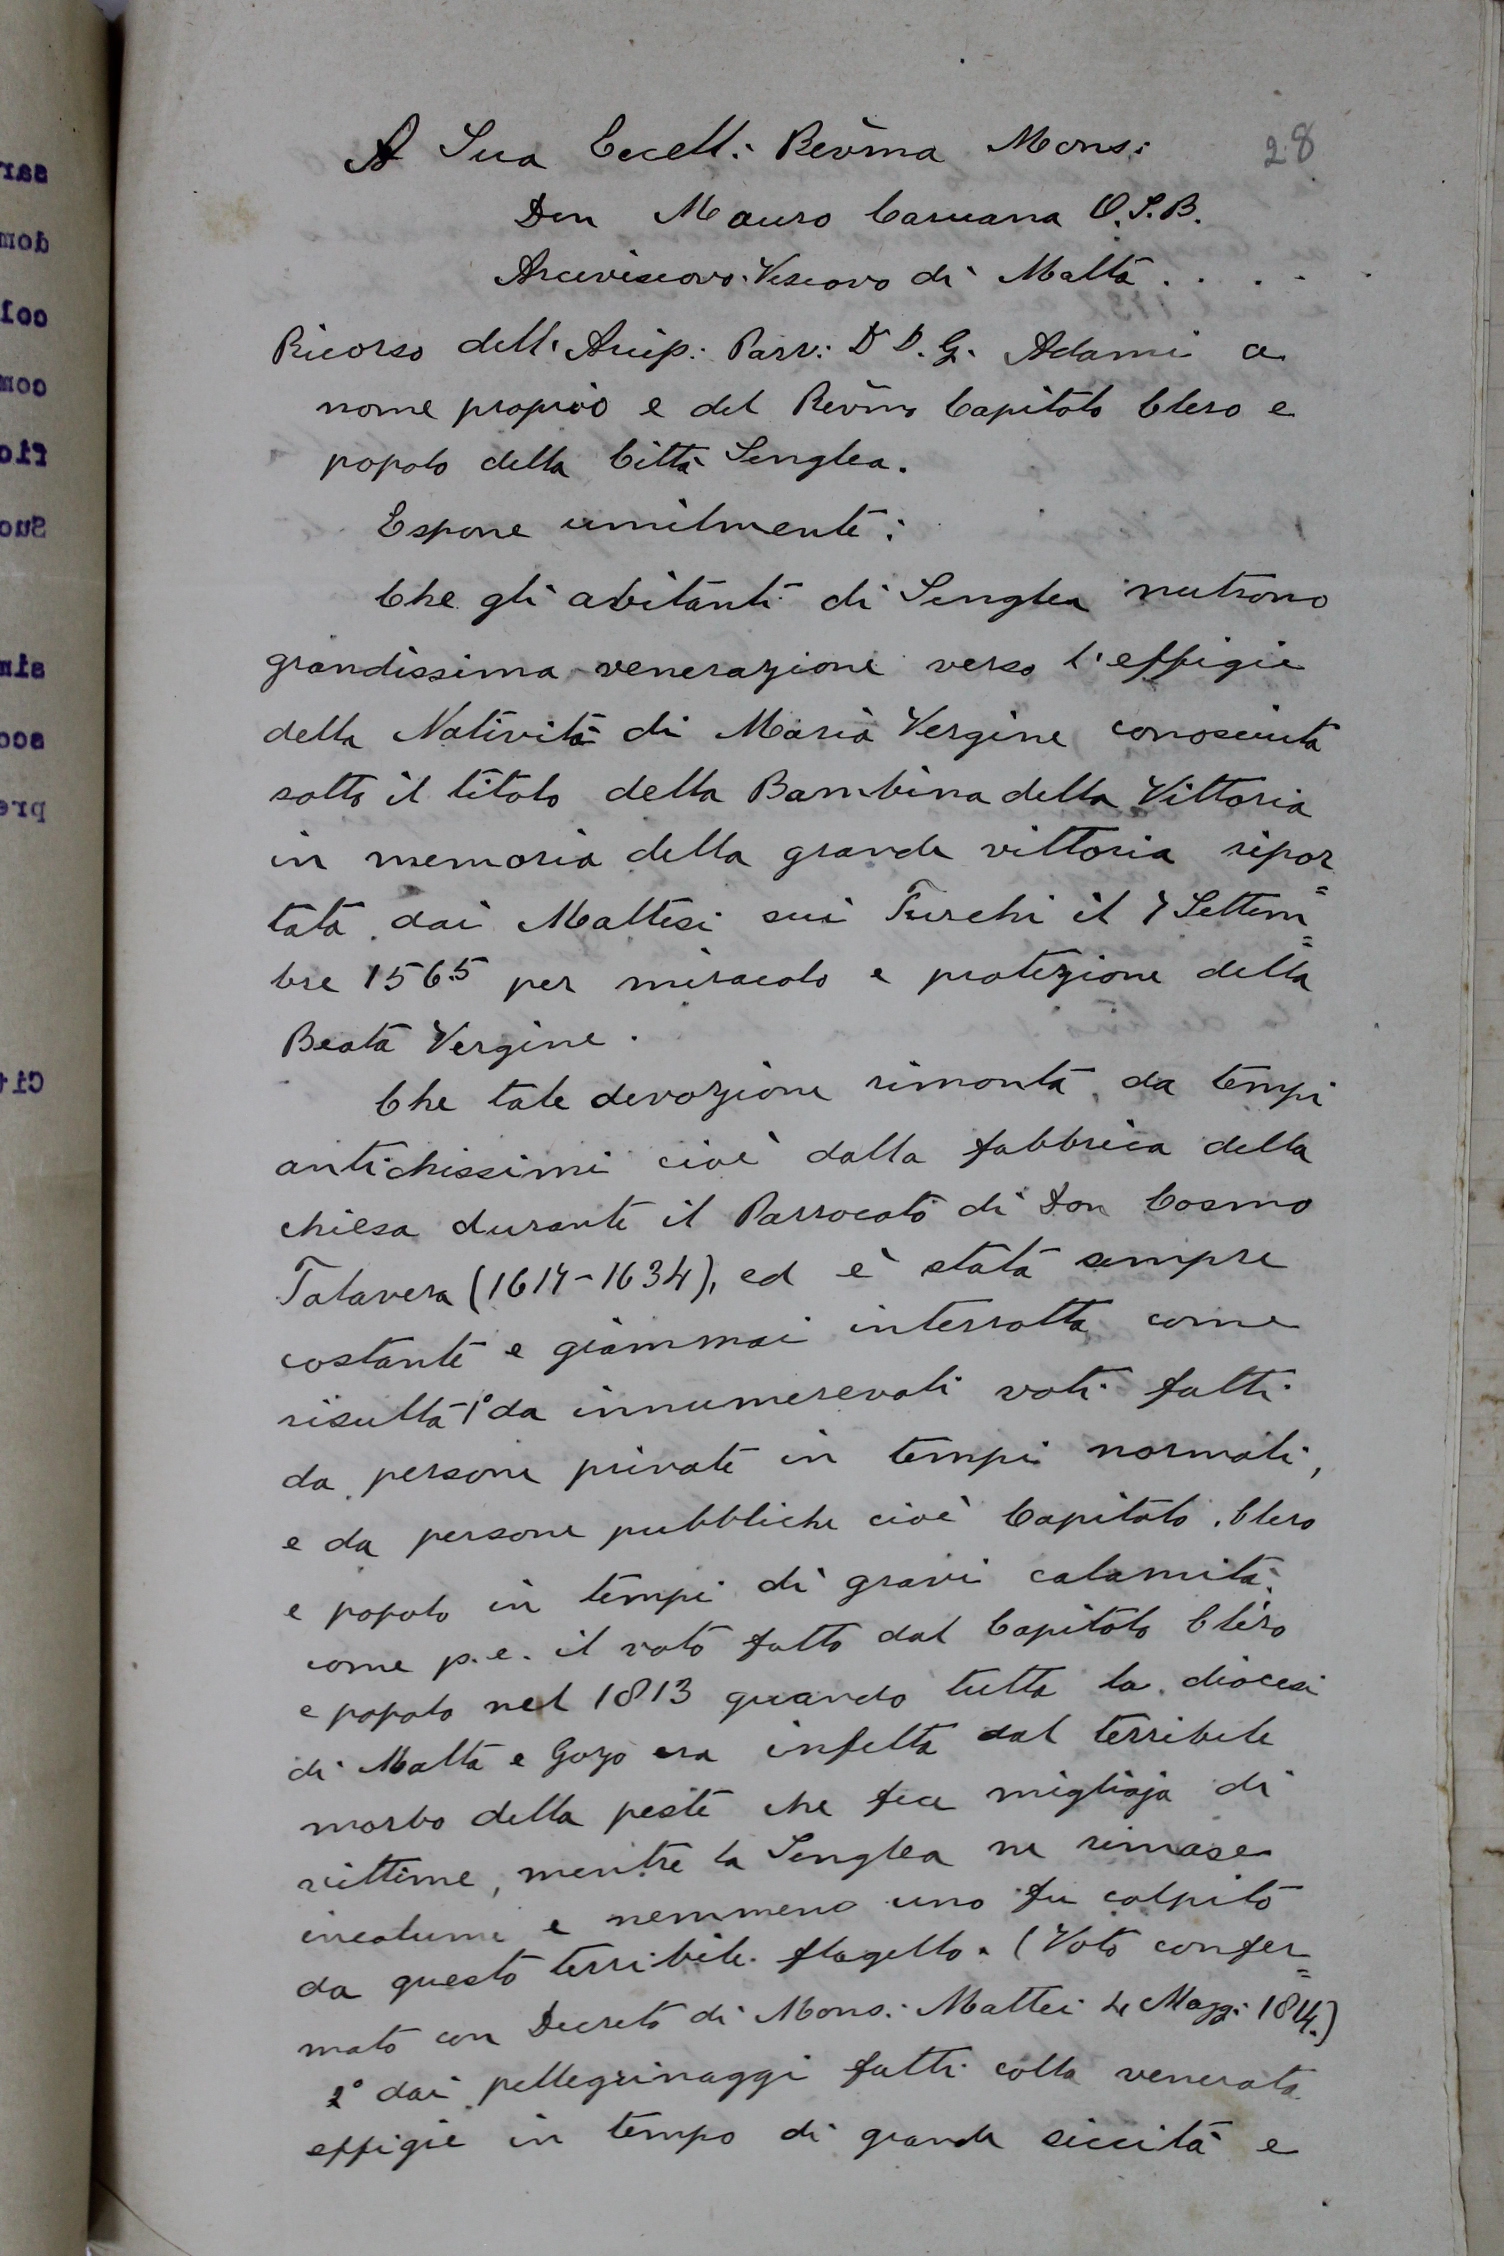 28
A Sua Eccell: Revm̃a Mons:
Don Mauro Caruana O.S.B.
Arcivescovo-Vescovo di Malta . . . .
Ricorso dell'Arcip: Parr: D D. G. Adami a
nome proprio e del Revm̃o Capitolo Clero e
popolo della Città Senglea.
Espone umilmente:
Che gli abitanti di Senglea nutrono
grandissima venerazione verso l'effigie
della Natività di Maria Vergine conosciuta
sotto il titolo della Bambina della Vittoria
in memoria della grande vittoria ripor=
tata dai Maltesi sui Turchi il 7 Settem=
bre 1565 per miracolo e protezione della
Beata Vergine.
Che tale devozione rimonta da tempi
antichissimi cioè dalla fabbrica della
chiesa durante il Parrocato di Don Cosmo
Talavera (1614-1634), ed è stata sempre
costante e giammai interrotta come
risulta 1° da innumerevoli voti fatti
da persone private in tempi normali,
e da persone pubbliche cioè Capitolo, Clero
e popolo in tempi di gravi calamità,
come p.e. il voto fatto dal Capitolo Clero
e popolo nel 1813 quando tutta la diocesi
di Malta e Gozo era infetta dal terribile
morbo della peste che fece migliaja di
vittime, mentre la Senglea ne rimase
incolume e nemmeno uno fu colpito
da questo terribile flagello. (Voto confer=
mato con Decreto di Mons: Mattei 4 Magg: 1814.)
2° dai pellegrinaggi fatti colla venerata
effigie in tempo di grande siccità e
sar
dom
col
com
fic
Suc
sim
acc
pre
Cit